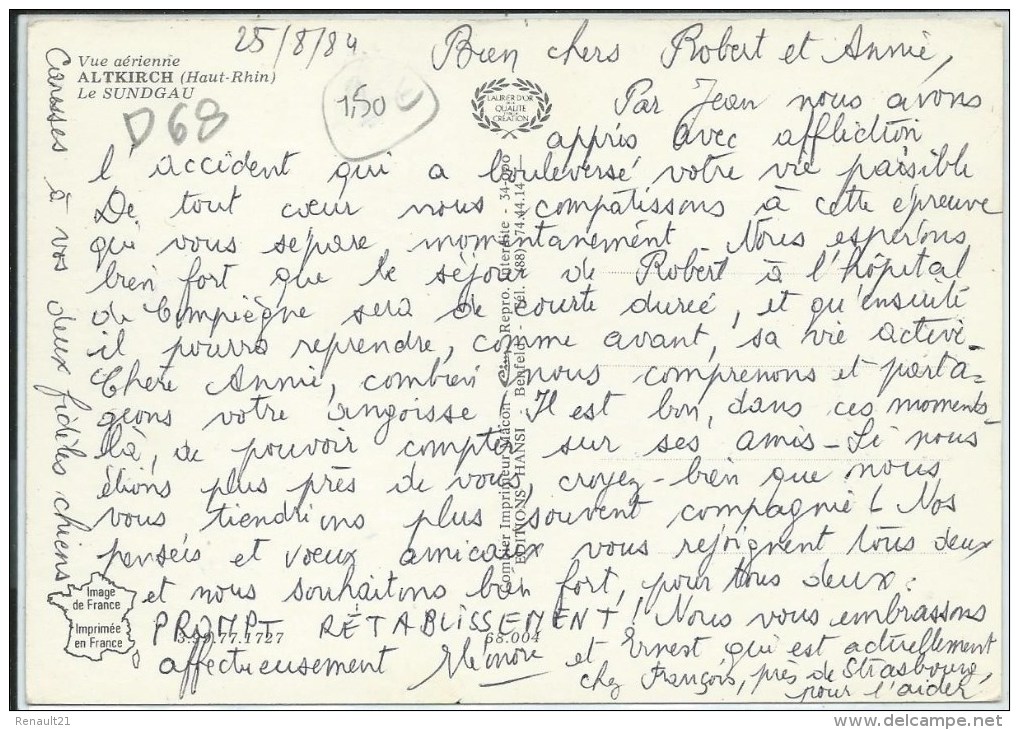 25/8/84
Bien chers Robert et Annie,
Vue aérienne
ALTKIRCH (Haut-Rhin)
Le SUNDGAU
D68
1,50 €
LAURIER D'OR
DE LA
QUALITÉ
CRÉATION
Par Jean nous avons
appris avec affliction
l'accident qui a bouleversé votre vie paisible
De tout cœur nous compatissons à cette épreuve
qui vous sépare momentanément. Nous espérons
bien fort que le séjour de Robert à l'hôpital
de Compiègne sera de courte durée, et qu'ensuite
il pourra reprendre, comme avant, sa vie active.
Chère Annie, combien nous comprenons et parta-
geons votre angoisse. Il est bon, dans ces moments
là, de pouvoir compter sur ses amis - Si nous
étions plus près de vous, croyez-bien que nous
vous tiendrions plus souvent compagnie! Nos
pensées et vœux amicaux vous rejoignent tous deux
et nous souhaitons bien fort, pour tous deux :
PROMPT RÉTABLISSEMENT! Nous vous embrassons
affectueusement Eléonore et Ernest qui est actuellement
chez François, près de Strasbourg,
pour l'aider
Caresses à vos deux fidèles chiens
Combier Imprimeur Mâcon - Repro. Interdite -
EDITIONS HANSI Benfeld - Tél. (88) 74.44.14
Image
de France
Imprimée
en France
3.99.77.1727
68.004
Renault21
www.delcampe.net